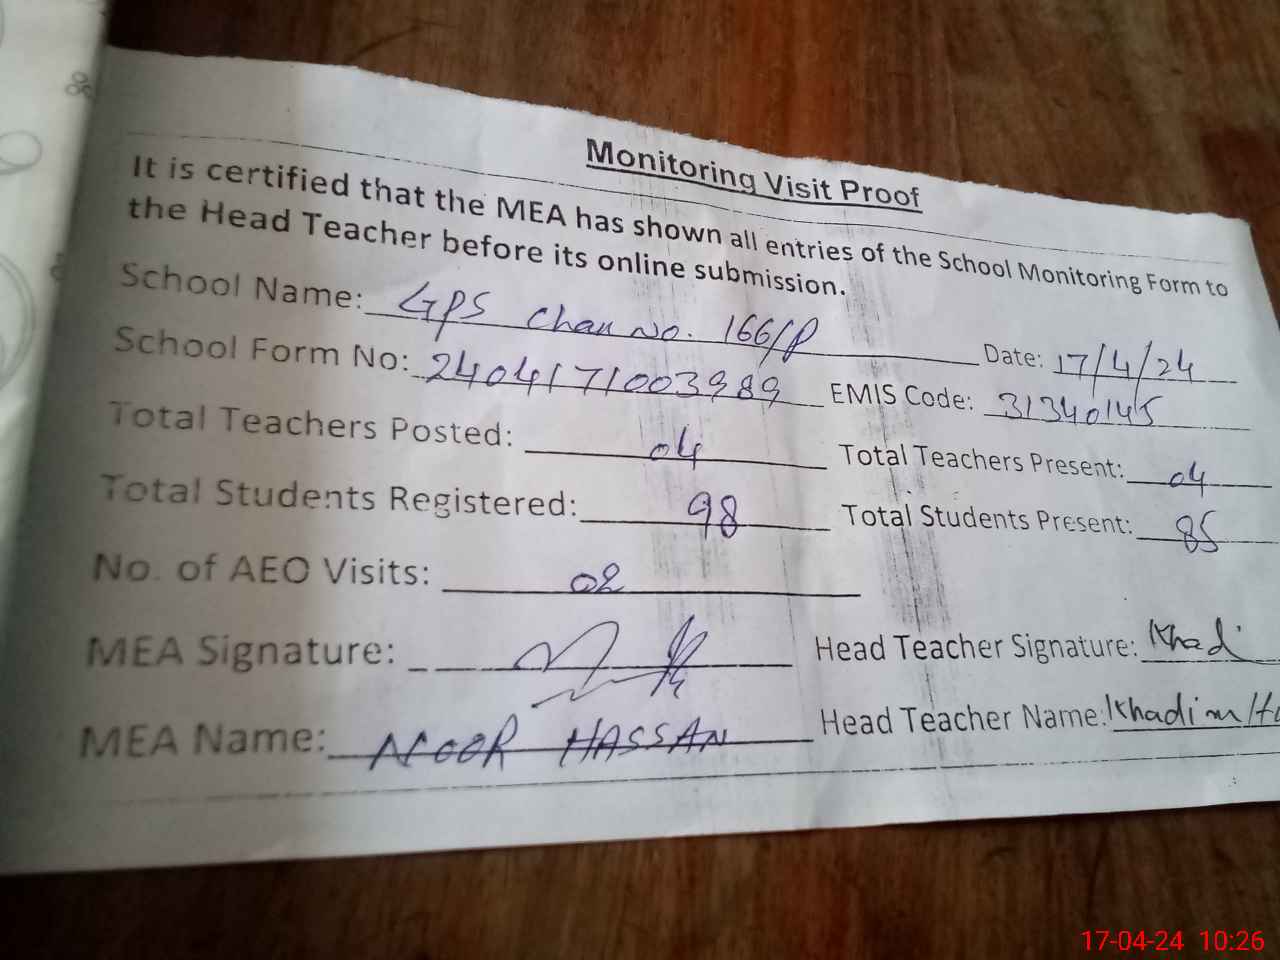 Monitoring Visit Proof
It is certified that the MEA has shown all entries of the School Monitoring Form to
the Head Teacher before its online submission.
School Name: GPS Chak No. 166/P Date: 17/4/24
School Form No: 2404171003989 EMIS Code: 31340145
Total Teachers Posted: 04 Total Teachers Present: 04
Total Students Registered: 98 Total Students Present: 85
No. of AEO Visits: 02
MEA Signature: Head Teacher Signature: Khadi
MEA Name: NOOR HASSAN Head Teacher Name: Khadim Hu
17-04-24 10:26